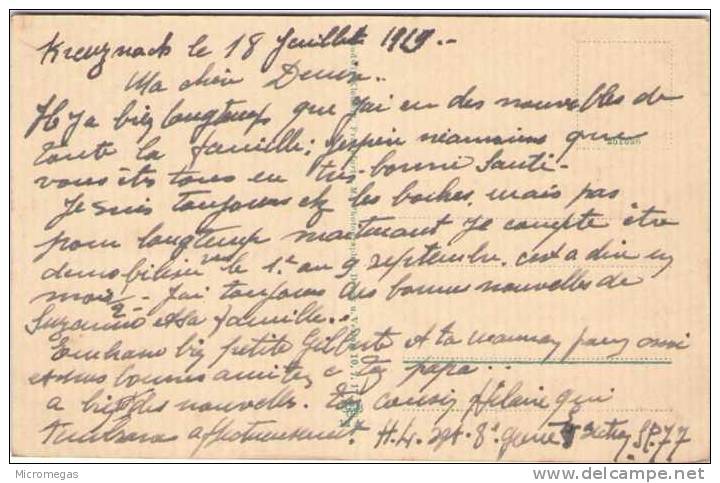 Kreuznach le 18 Juillet 1919.-
Ma chère
Il y a bien longtemps que j'ai eu des nouvelles de
toute la famille; j'espère néanmoins que
vous êtes tous en très bonne santé.
Je suis toujours chez les boches, mais pas
pour longtemps maintenant je compte être
démobilisé vers le 1er au 9 septembre, c'est a dire un
mois ½ - J'ai toujours des bonnes nouvelles de
Suzanne et sa famille..
Embrasse bien petite Gilberte et ta maman pour moi
et mes bonnes amitiés a ton papa..
a bientôt des nouvelles. Ton cousin Hilaire qui
t'embrasse affectueusement. SP.77
201026
Micromegas
delcampe.net